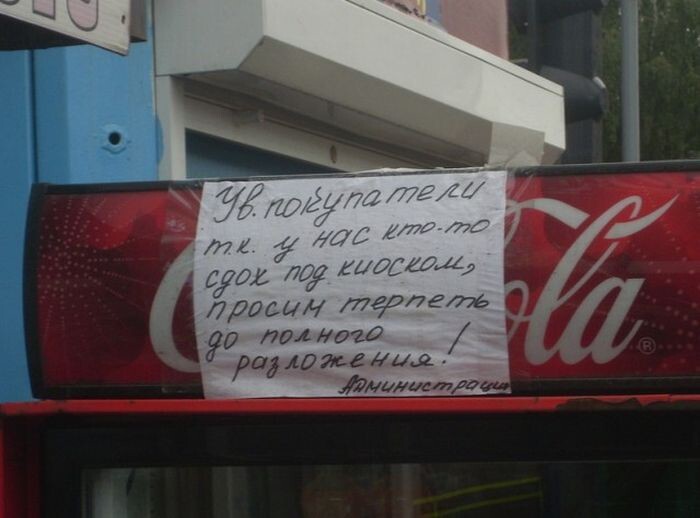 Ув. покупатели
т.к. у нас кто-то
сдох под киоском,
просим терпеть
до полного
разложения!
Администрация
C Cola ®